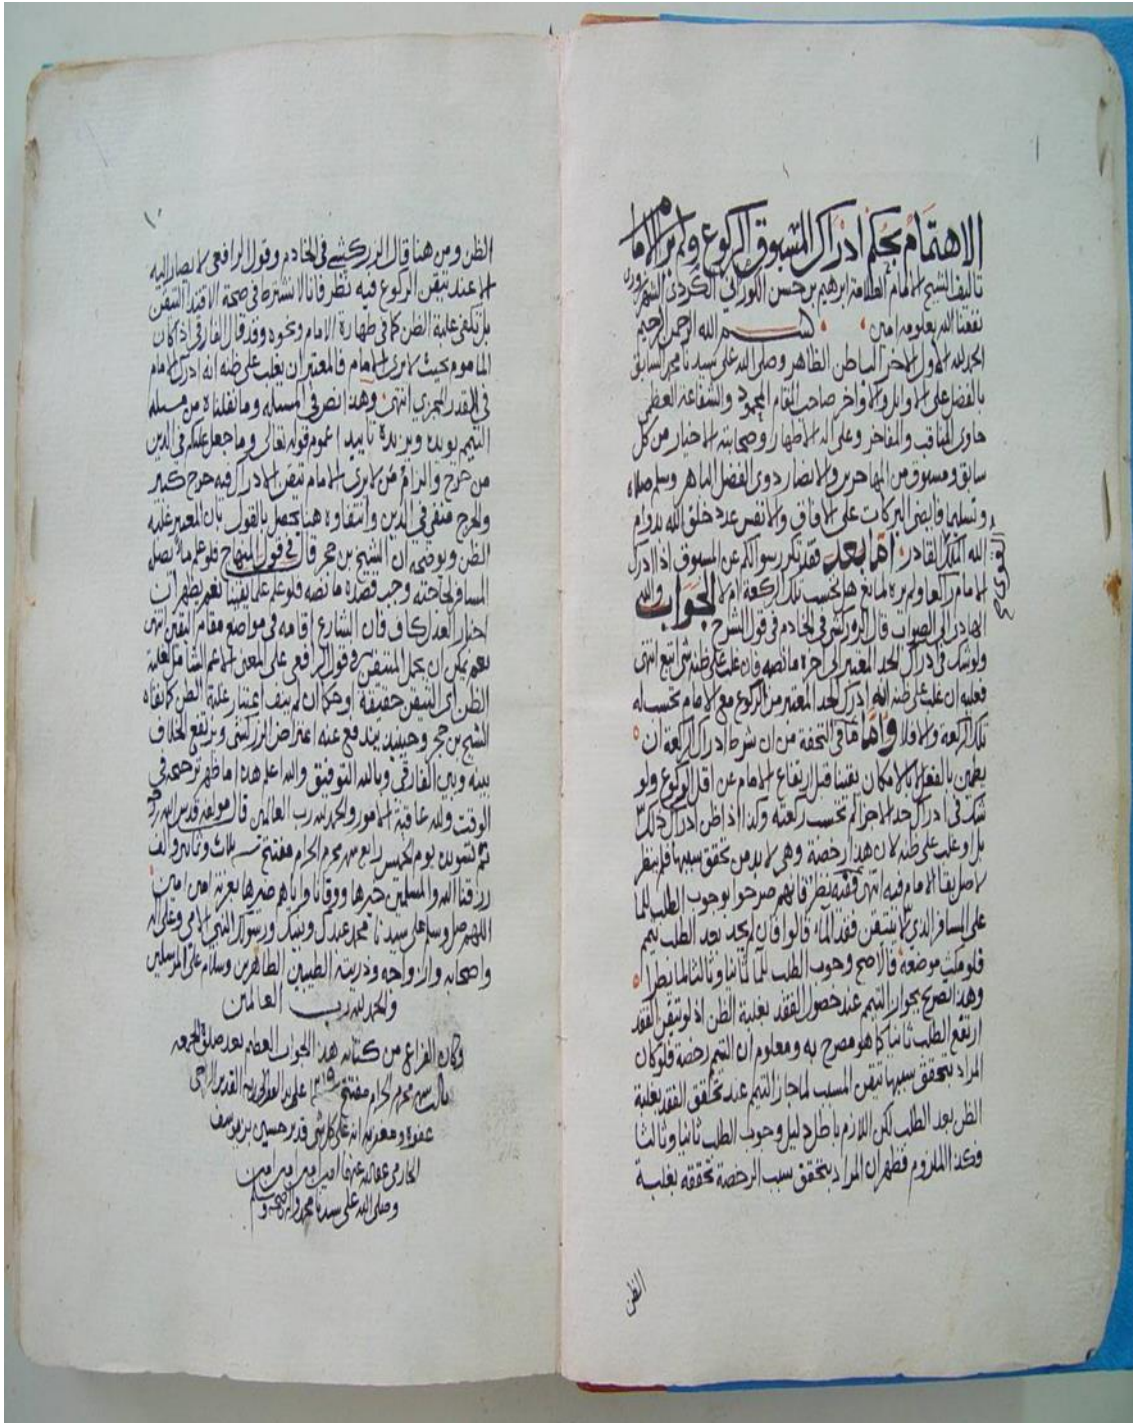 الاهتمام بحكم ادراك المسبوق الركوع ولم ير الامام
تاليف الشيخ الامام العلامة ابرهيم بن حسن الكوراني الكردي الشهرزوري
نفعنا الله بعلومه امين بسم الله الرحمن الرحيم
الحمد لله الاول الاخر الباطن الظاهر وصلى الله على سيدنا محمد السابق
بالفضل على الاوايل والاواخر صاحب المقام المحمود والشفاعة العظمى
حاوي المناقب والمفاخر وعلى اله الاطهار وصحابته الاخيار من كل
سابق ومسبوق من المهاجرين والانصار ذوي الفضل الباهر وسلم صلاة
وتسليما فايضي البركات على الافاق والانفس عدد خلق الله بدوام
الله الملك القادر اما بعد فقد تكرر سوالكم عن المسبوق اذا ادرك
الامام راكعا ولم يره لمانع هل تحسب تلك الركعة ام لا الجواب والله
الهادي الى الصواب قال الزركشي في الخادم في قول الشرح
ولو شك في ادراك الحد المعتبر الى اخره ما نصه فان غلب على ظنه شي اتبع انتهى
فعليه ان غلب على ظنه انه ادرك الحد المعتبر من الركوع مع الامام تحسب له
تلك الركعة والا فلا واما ما في التحفة من ان شرط ادراك الركعة ان
يطمين بالفعل لا بالامكان يقينا قبل ارتفاع الامام عن اقل الركوع ولو
شك في ادراك حد الاجزا لم تحسب ركعته وكذا اذا ظن ادراك ذلك
بل او غلب على ظنه لان هذا رخصة وهي لا بد من تحقق سببها فلم ينظر
لاصل بقا الامام فيه انتهى ففيه نظر فانهم صرحوا بوجوب الطلب للما
على المسافر الذي لم يتيقن فقد الماء قالوا فان لم يجد بعد الطلب تيمم
فلو مكث موضعه فالاصح وجوب الطلب للما ثانيا وثالثا لما يطرا
وهذا تصريح بجواز التيمم عند حصول الفقد بغلبة الظن اذ لو تيقن الفقد
ارتفع الطلب ثانيا كما هو مصرح به ومعلوم ان التيمم رخصة فلو كان
المراد بتحقق سببها تيقن المسبب لما جاز التيمم عند تحقق الفقد بغلبة
الظن بعد الطلب لكن اللازم باطل دليل وجوب الطلب ثانيا وثالثا
فكذا الملزوم فظهر ان المراد بتحقق سبب الرخصة تحققه بغلبة
الظن
الظن ومن هنا قال الزركشي في الخادم وقول الرافعي لا يصار اليه
الا عند تيقن الركوع فيه نظر فانا لا نشترط في صحة الاقتدا التيقن
بل تكفي غلبة الظن كما في طهارة الامام ونحوه وقد قال الفارقي اذا كان
الماموم بحيث لا يرى الامام فالمعتبر ان يغلب على ظنه انه ادرك الامام
في القدر المجزي انتهى وهذا نص في المسيله وما نقلناه من مسيلة
التيمم يويده ويزيده تاييدا عموم قوله تعالى وما جعل عليكم في الدين
من حرج والزام من لا يرى الامام تيقن الادراك فيه حرج كبير
والحرج منفي في الدين وانتفاوه هنا يحصل بالقول بان المعتبر غلبة
الظن ويوضحه ان الشيخ بن حجر قال في قول المنهاج فلو علم ماء يصله
المسافر لحاجته وجب قصده ما نصه فلو علم علما يقينا نعم يظهر ان
اخبار العدل كاف فان الشارع اقامه في مواضع مقام اليقين انتهى
نعم يمكن ان يحمل المتيقن في قول الرافعي على المعنى الاعم الشامل لغلبة
الظن اي التيقن حقيقة او حكما ان لم ينف اعتبار غلبة الظن كما نفاه
الشيخ بن حجر وحينيذ يندفع عنه اعتراض الزركشي ويرتفع الخلاف
بينه وبين الفارقي وبالله التوفيق والله اعلم هذا ما ظهر ترجيحه في
الوقت ولله عاقبة الامور والحمد لله رب العالمين قال مولفه قدس الله روحه
تم تسويده يوم الخميس رابع شهر محرم الحرام مفتتح سنة ثلاث وثمانين والف
رزقنا الله والمسلمين خيرها ووقانا واياهم ضيرها بعزته امين امين
اللهم صل وسلم على سيدنا محمد عبدك ونبيك ورسولك النبي الامي وعلى اله
واصحابه وازواجه وذريته الطيبين الطاهرين وسلام على المرسلين
والحمد لله رب العالمين
وكان الفراغ من كتابه هذا الجواب العظيم بعد صلاة الجمعه
ثالث شهر محرم الحرام مفتتح على يد الفقير الراجي
عفوه ومغفرته انه على كل شي قدير حسين بن يوسف
عفا الله عنهما امين امين امين
وصلى الله على سيدنا محمد واله وصحبه وسلم